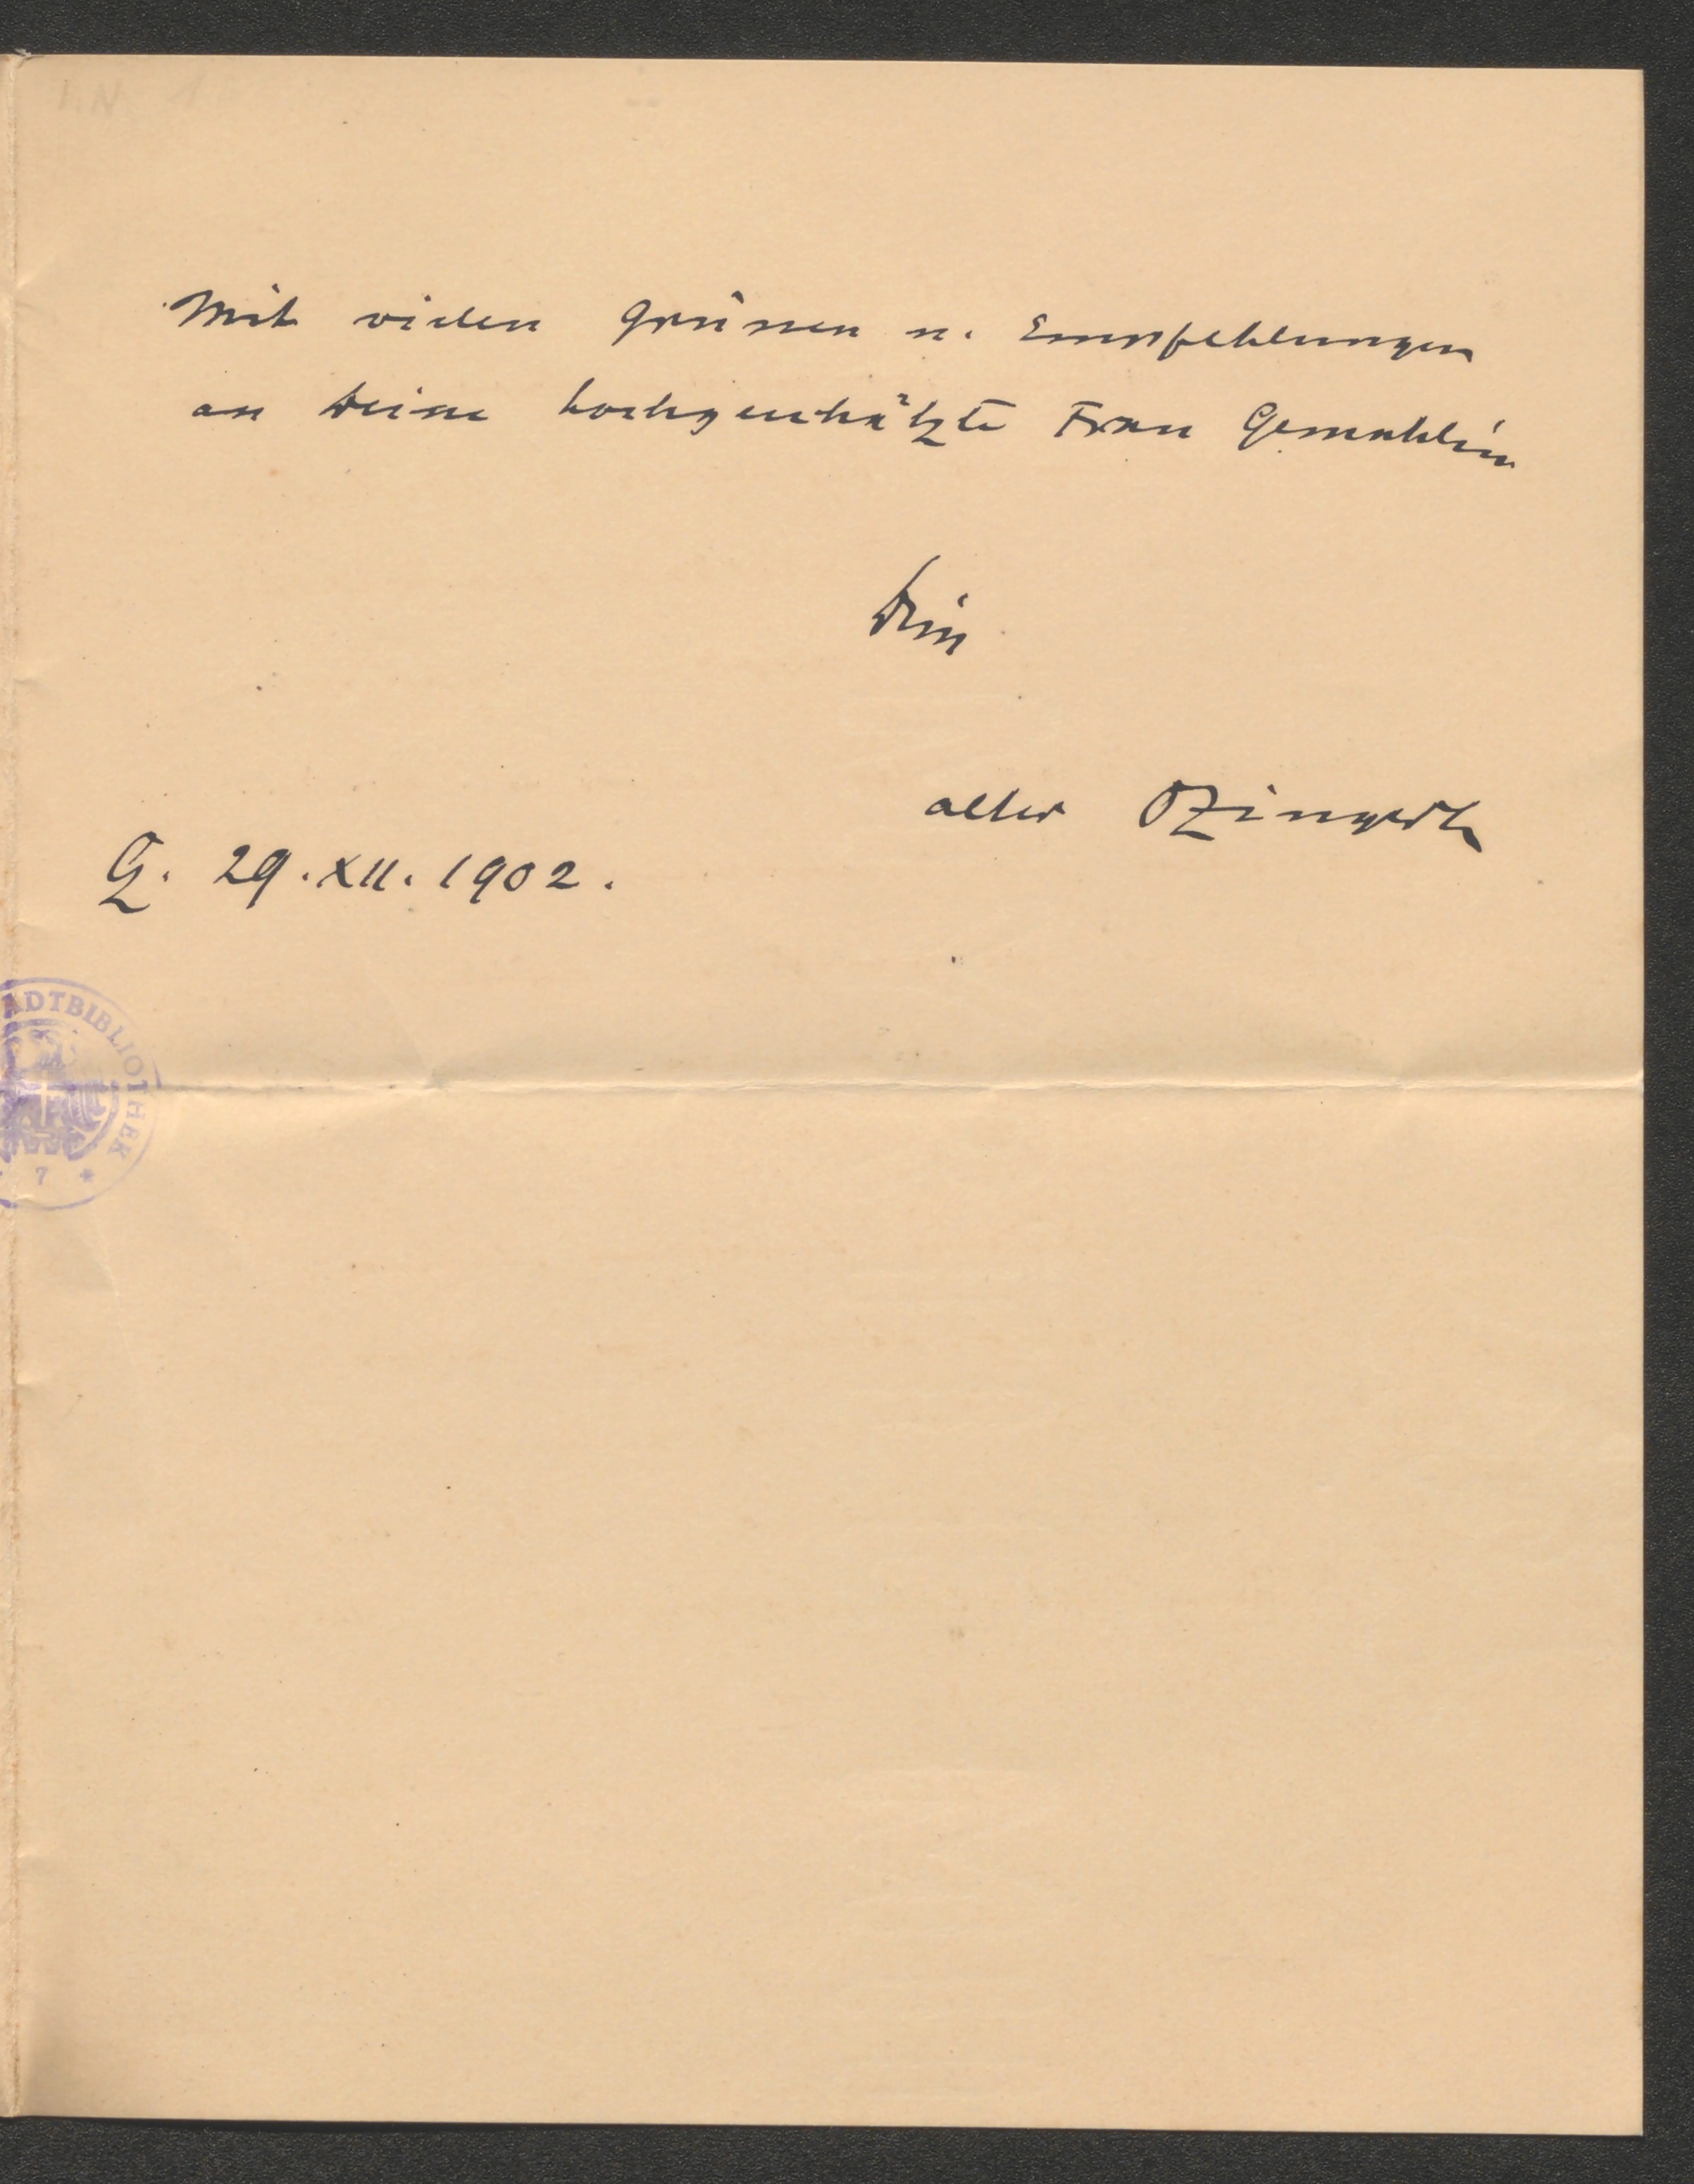 Mit vielen Grüssen u. Empfehlungen
an Deine hochgeschätzte Frau Gemahlin
Dein
alter OZingerle
G. 29.XII.1902.
ADTBIBLIOTHEK
7 *